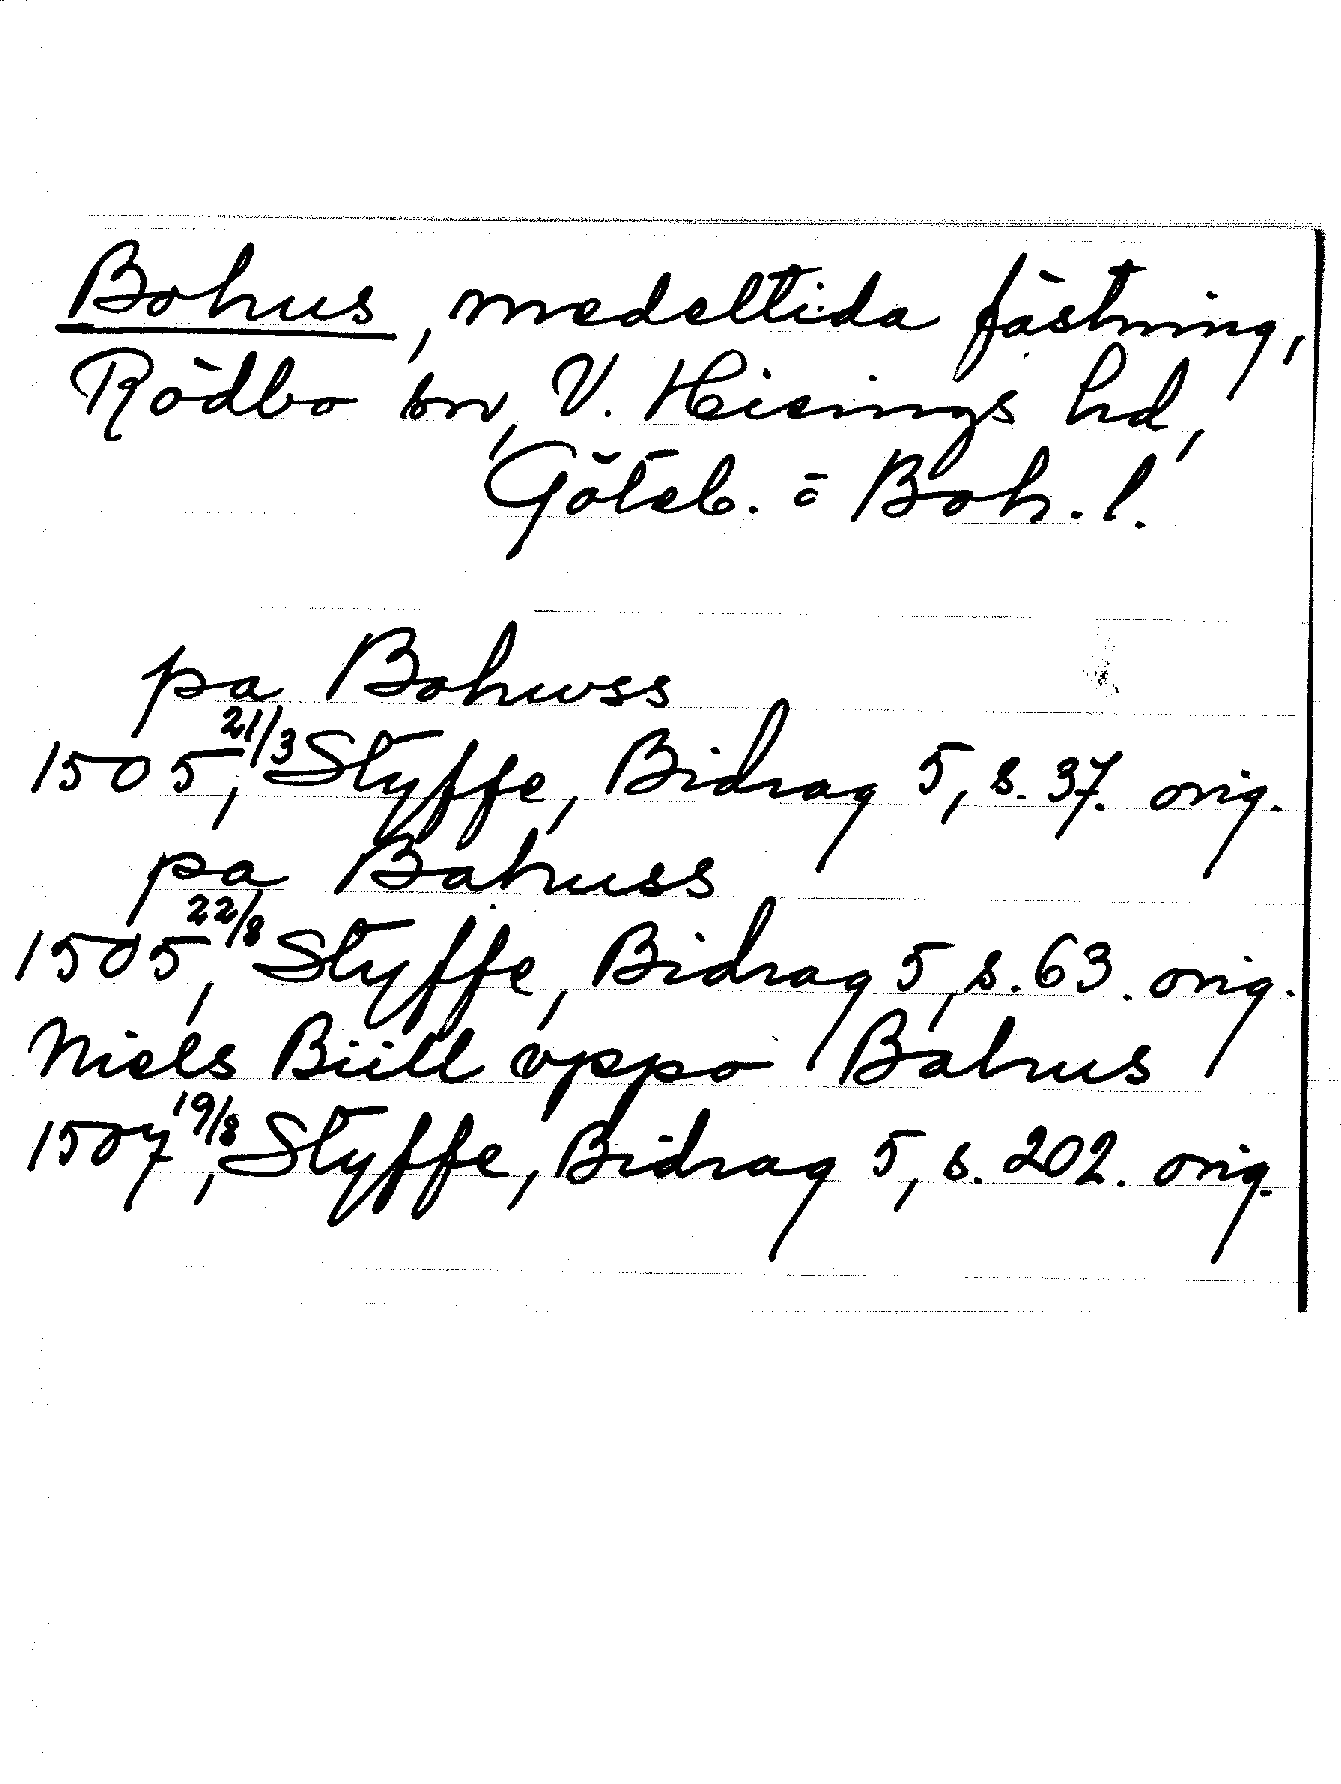 Bohus, medeltida fästning,
Rödbo sn, V. Hisings hd,
Göteb. o Boh. l.
pa Bohwss
1505 21/3, Styffe, Bidrag 5, s. 37. orig.
pa Bahuss
1505 22/8, Styffe, Bidrag 5, s. 63. orig.
Niels Biill oppo Bahus
1507 19/8, Styffe, Bidrag 5, s. 202. orig.